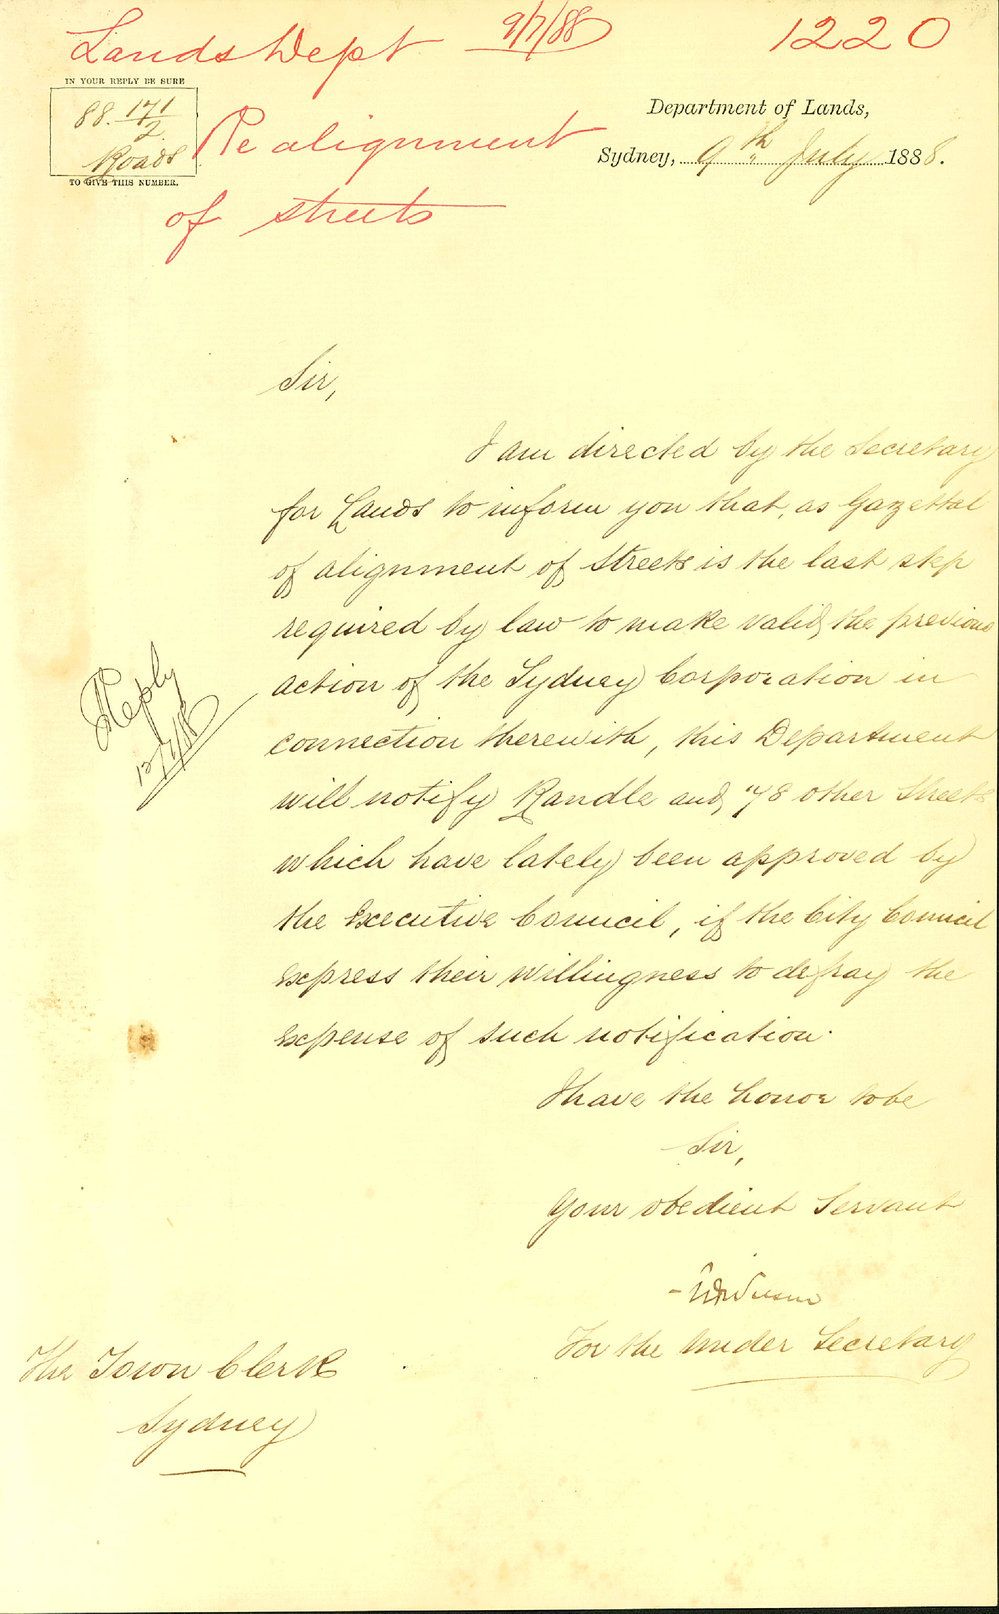 Lands Dept 9/7/88 1220
IN YOUR REPLY BE SURE
88. 171/2
Roads
TO GIVE THIS NUMBER.
Re alignment
of streets
Department of Lands,
Sydney, 9th July 1888.
Sir,
I am directed by the Secretary
for Lands to inform you that, as Gazettal
of alignment of Streets is the last step
required by law to make valid the previous
action of the Sydney Corporation in
connection therewith, this Department
will notify Randle and 78 other Streets
which have lately been approved by
the Executive Council, if the City Council
express their willingness to defray the
expense of such notification.
Reply
I have the honor to be
Sir,
Your obedient Servant
For the Under Secretary
The Town Clerk
Sydney